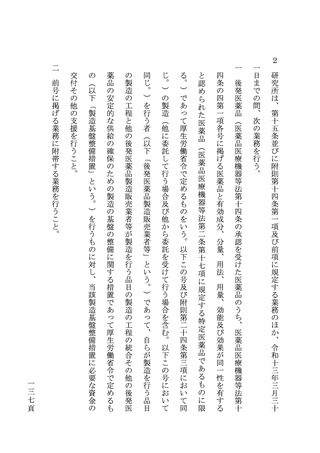 ２　研究所は、第十五条並びに附則第十四条第一項及び前項に規定する業務のほか、令和十三年三月三十
一日までの間、次の業務を行う。
一　後発医薬品（医薬品医療機器等法第十四条の承認を受けた医薬品のうち、医薬品医療機器等法第十
四条の四第一項各号に掲げる医薬品と有効成分、分量、用法、用量、効能及び効果が同一性を有する
と認められた医薬品（医薬品医療機器等法第二条第十七項に規定する特定医薬品であるものに限
る。）であって厚生労働省令で定めるものをいう。以下この号及び附則第二十四条第三項において同
じ。）の製造（他に委託して行う場合及び他から委託を受けて行う場合を含む。以下この号において
同じ。）を行う者（以下「後発医薬品製造販売業者等」という。）であって、自らが製造を行う品目
の製造の工程と他の後発医薬品製造販売業者等が製造を行う品目の製造の工程の統合その他の後発医
薬品の安定的な供給の確保のための製造の基盤の整備に関する措置であって厚生労働省令で定めるも
の（以下「製造基盤整備措置」という。）を行うものに対し、当該製造基盤整備措置に必要な資金の
交付その他の支援を行うこと。
二　前号に掲げる業務に附帯する業務を行うこと。
一三七頁